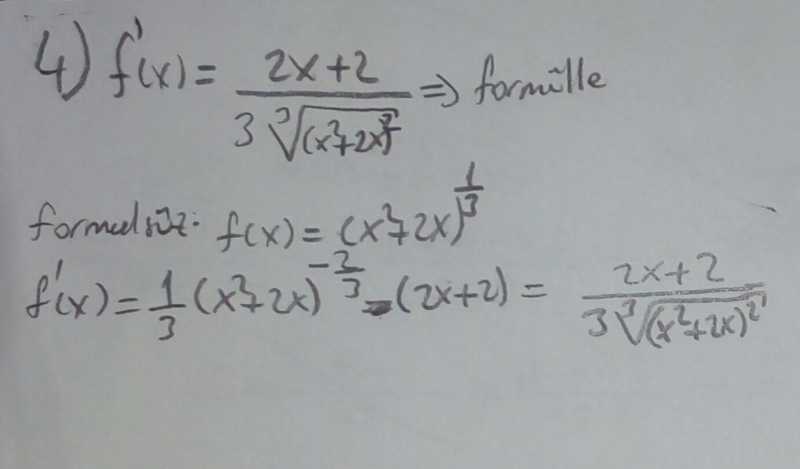 4) f'(x) = (2x+2) / (3 ∛((x²+2x)²)) => formülle
formulsüz: f(x) = (x²+2x)^(1/3)
f'(x) = 1/3 (x²+2x)^(-2/3) - (2x+2) = (2x+2) / (3 ∛((x²+2x)²))